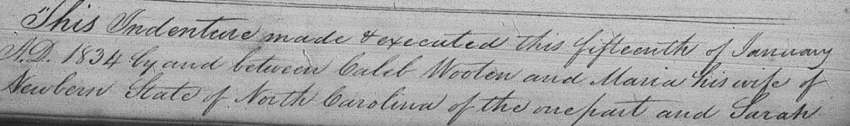 This Indenture made & executed this fifteenth of January
A.D. 1834 by and between Caleb Wooten and Maria his wife of
Newbern State of North Carolina of the one part and Sarah